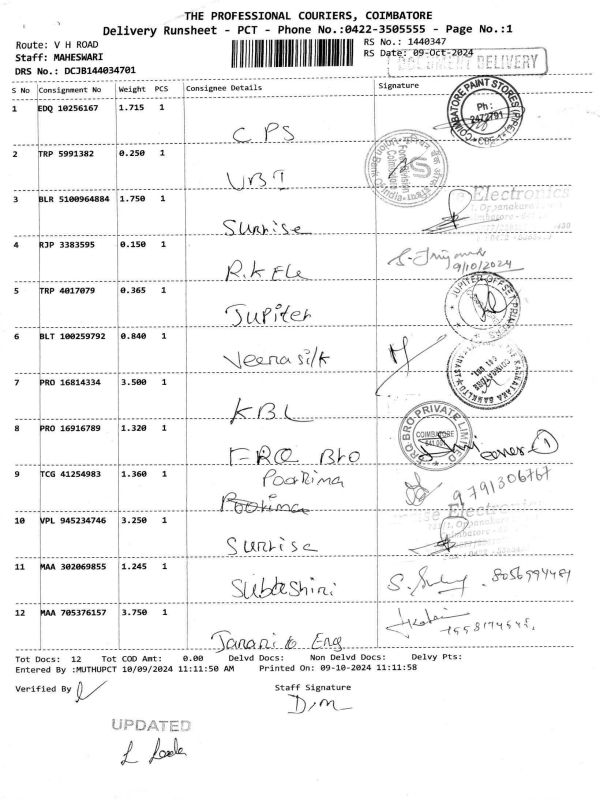 THE PROFESSIONAL COURIERS, COIMBATORE
Delivery Runsheet - PCT - Phone No.:0422-3505555 - Page No.:1
Route: V H ROAD
RS No.: 1440347
Staff: MAHESWARI
RS Date: 09-Oct-2024
DOCUMENT DELIVERY
DRS No.: DCJB144034701
S No Consignment No Weight PCS Consignee Details Signature
1 EDQ 10256167 1.715 1
COIMBATORE PAINT STORES (RSPE) Ph: 2472791 CBE-1
CPS
2 TRP 5991382 0.250 1
UBI
3 BLR 5100964884 1.750 1
Electronics
Sunrise
4 RJP 3383595 0.150 1
R.K Ele
9/10/2024
5 TRP 4017079 0.365 1
JUPITER OFFSET PRINTERS
Jupiter
6 BLT 100259792 0.840 1
Veena silk
7 PRO 16814334 3.500 1
KARNATAKA BANK LTD
KBL
8 PRO 16916789 1.320 1
BRO PRIVATE LIMITED COIMBATORE
FRO Bro
9 TCG 41254983 1.360 1
Poorima
9791306767
Poorima
10 VPL 945234746 3.250 1
Electronics
Sunrise
11 MAA 302069855 1.245 1
Subashini
12 MAA 705376157 3.750 1
Janani Eng
Tot Docs: 12 Tot COD Amt: 0.00 Delvd Docs: Non Delvd Docs: Delvy Pts:
Entered By :MUTHUPCT 10/09/2024 11:11:50 AM Printed On: 09-10-2024 11:11:58
Verified By
Staff Signature
UPDATED